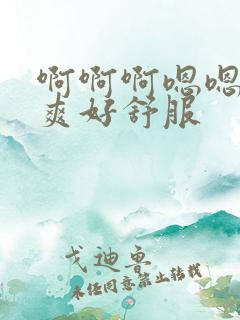 啊啊啊嗯嗯
爽好舒服
戈迪鲁
未经同意禁止转载